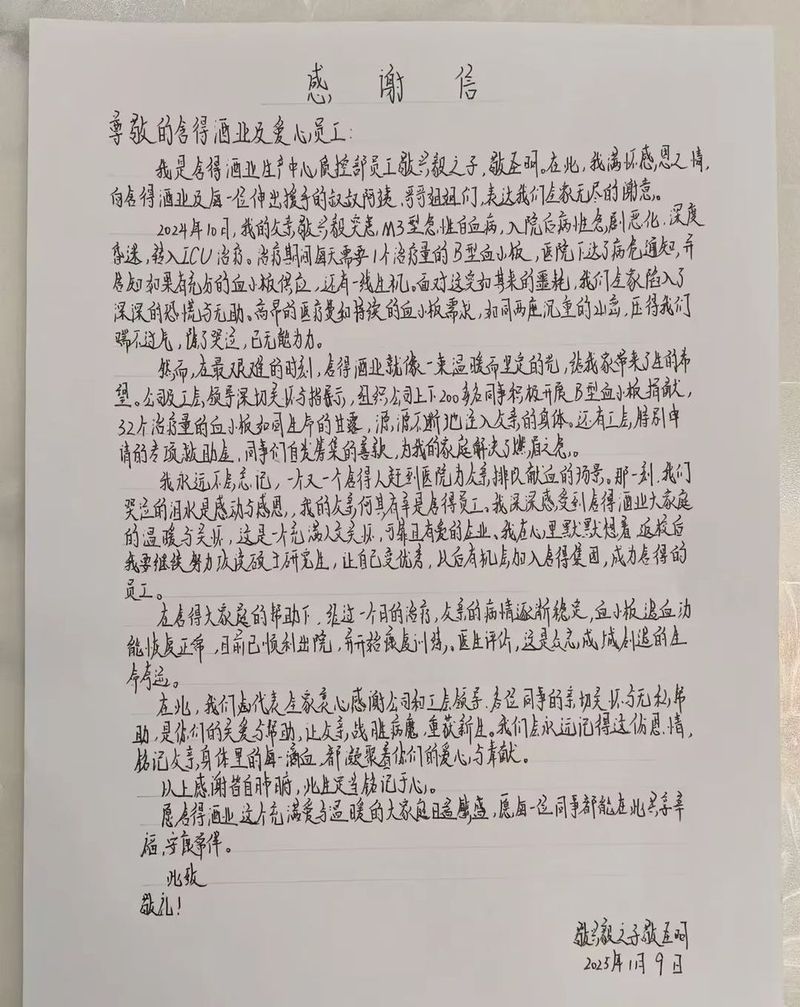 感谢信
尊敬的舍得酒业及爱心员工：
我是舍得酒业生产中心质控部员工敬兴毅之子，敬圣明。在此，我满怀感恩之情，
向舍得酒业及每一位伸出援手的叔叔阿姨、哥哥姐姐们，表达我们全家无尽的谢意。
2024年10月，我的父亲敬兴毅突患M3型急性白血病，入院后病性急剧恶化，深度
昏迷，转入ICU治疗。治疗期间每天需要1个治疗量的B型血小板，医院下达了病危通知，并
告知如果有充分的血小板供应，还有一线生机。面对这突如其来的噩耗，我们全家陷入了
深深的恐慌与无助。高昂的医疗费和持续的血小板需求，如同两座沉重的山峦，压得我们
喘不过气，除了哭泣，已无能为力。
然而，在最艰难的时刻，舍得酒业就像一束温暖而坚定的光，给我家带来了生的希
望。公司及工会领导深切关怀与指示，组织公司上下200多名同事积极开展B型血小板捐献，
32个治疗量的血小板如同生命的甘露，源源不断地注入父亲的身体。还有工会特别申
请的专项救助金，同事们自发筹集的善款，为我的家庭解决了燃眉之急。
我永远不会忘记，一个又一个舍得人赶到医院为父亲排队献血的场景。那一刻，我们
哭泣的泪水是感动与感恩，我的父亲何其有幸是舍得员工。我深深感受到舍得酒业大家庭
的温暖与关怀，这是一个充满人文关怀，可靠且有爱的企业。我在心里默默想着，返校后
我要继续努力攻读硕士研究生，让自己变优秀，以后有机会加入舍得集团，成为舍得的
员工。
在舍得大家庭的帮助下，经过一个月的治疗，父亲的病情逐渐稳定，血小板造血功
能恢复正常，目前已顺利出院，并开始康复训练。医生评估，这是众志成城创造的生
命奇迹。
在此，我们谨代表全家衷心感谢公司和工会领导、各位同事的亲切关怀与无私帮
助，是你们的关爱与帮助，让父亲战胜病魔，重获新生。我们会永远记得这份恩情，
铭记父亲身体里的每一滴血，都凝聚着你们的爱心与奉献。
以上感谢皆自肺腑，此生定当铭记于心。
愿舍得酒业这个充满爱与温暖的大家庭日益鼎盛，愿每一位同事都能在此共享幸
福，安康常伴。
此致
敬礼！
敬兴毅之子敬圣明
2025年1月9日